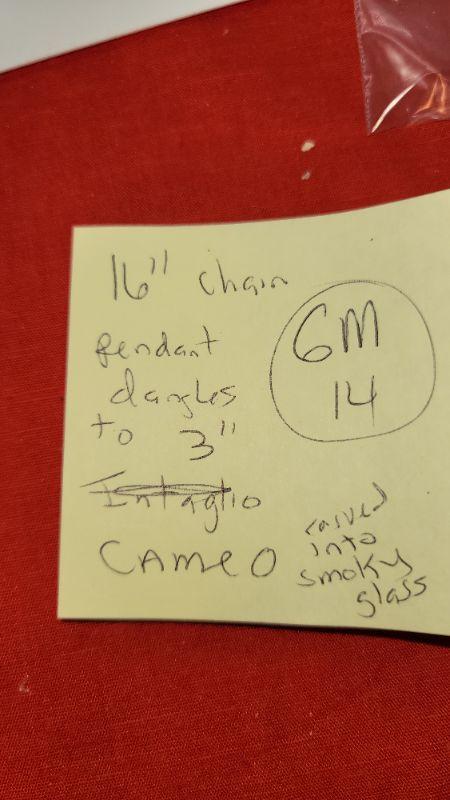 16" chain
pendant
dangles
to 3"
Intaglio
CAMEO
GM
14
carved
into
smoky
glass